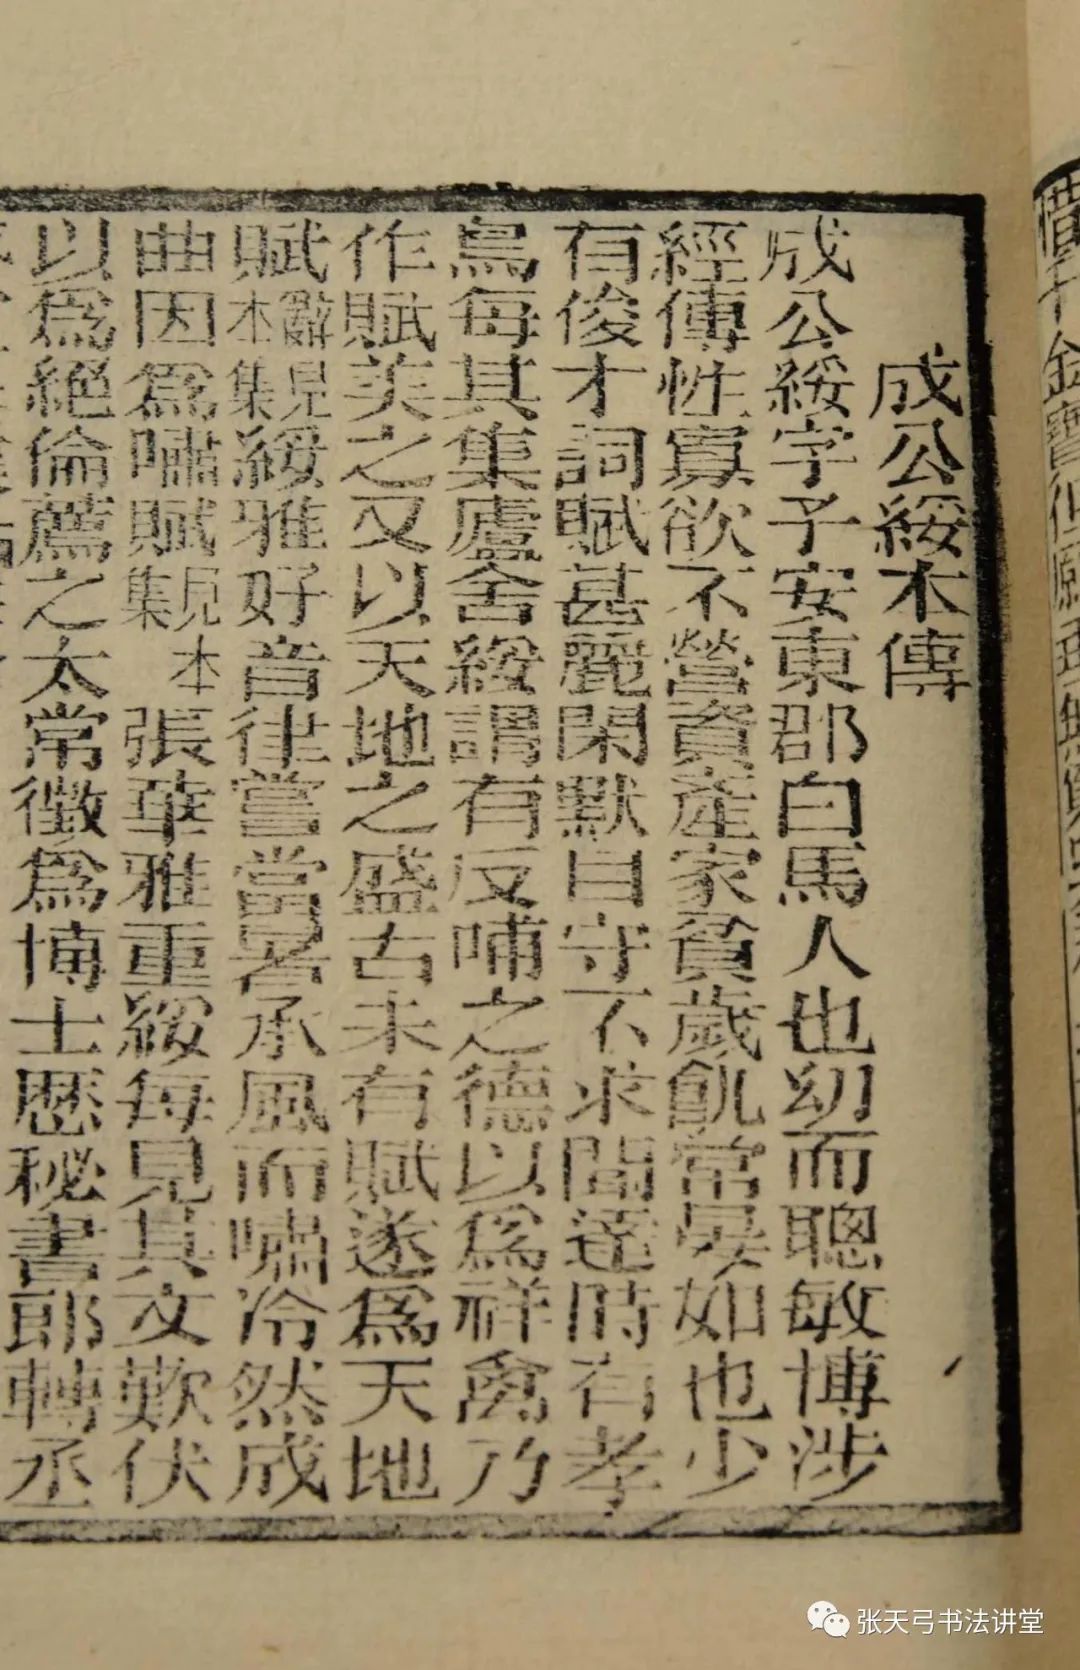 成公綏本傳
成公綏字子安東郡白馬人也幼而聰敏博涉
經傳性寡欲不營資產家貧歲飢常晏如也少
有俊才詞賦甚麗閑默自守不求聞達時有孝
烏每其集廬舍綏謂有反哺之德以爲祥禽乃
作賦美之又以天地之盛古未有賦遂爲天地
賦辭見本集綏雅好音律嘗當暑承風而嘯冷然成
曲因爲嘯賦見本集張華雅重綏每見其文歎伏
以爲絕倫薦之太常徵爲博士歷秘書郎轉丞
张天弓书法讲堂